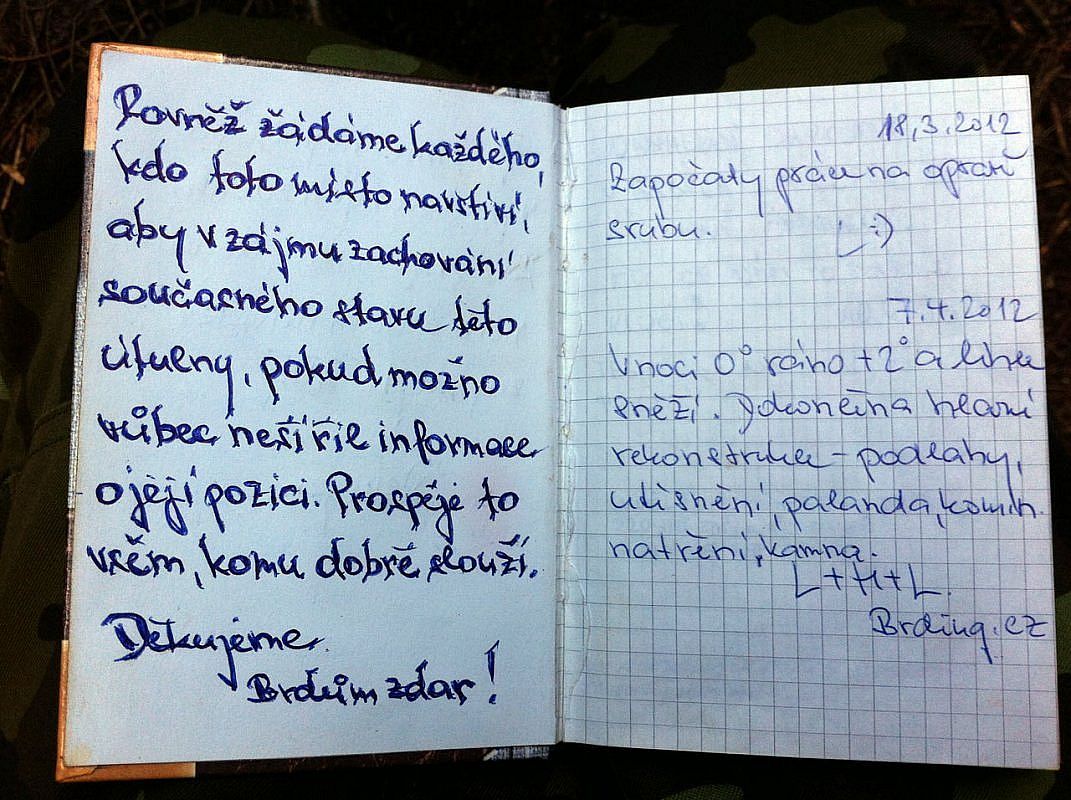 Rovněž žádáme každého,
kdo toto místo navštíví,
aby v zájmu zachování
současného stavu této
útulny, pokud možno
vůbec nešířil informace
o její pozici. Prospěje to
všem, komu dobře slouží.
Děkujeme
Brdům zdar!
18.3.2012
Započaty práce na opravě
srubu. L :)
7.4.2012
V noci 0° ráno +2° a lehce
sněží. Dokončena hlavní
rekonstrukce - podlahy,
utěsnění, palanda, komín.
natření, kamna.
L+H+L.
Brding.cz